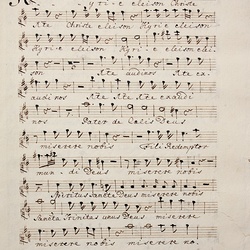 yri-e eleison Christe
Xte Christe eleison Kyrie
Kyrie eleison Kyrie eleison elei
son Xte audinos Xte ex
audi nos Xte Xte exaudi
nos Pater de Celis Deus
miserere nobis Fili Redemptor
mun-di Deus miserere nobis
Spiritus sancte Deus miserere nobis
Sancta Trinitas unus Deus miserere
miserere nobis miserere no